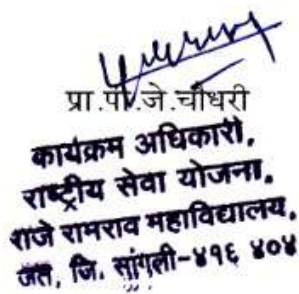 प्रा.पी.जे.चौधरी
कार्यक्रम अधिकारी,
राष्ट्रीय सेवा योजना,
राजे रामराव महाविद्यालय,
जत, जि. सांगली-४१६ ४०४